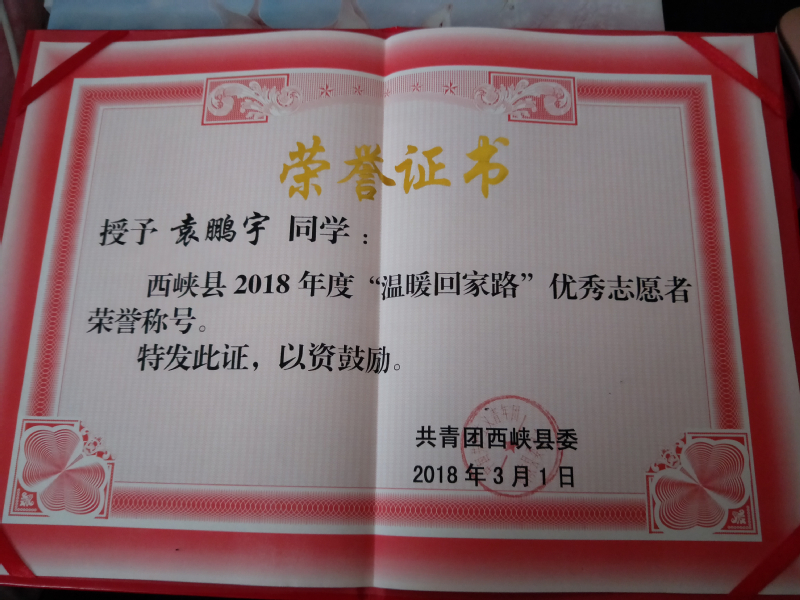 荣誉证书
授予 袁鹏宇 同学：
西峡县2018年度“温暖回家路”优秀志愿者
荣誉称号。
特发此证，以资鼓励。
共青团西峡县委
2018年3月1日